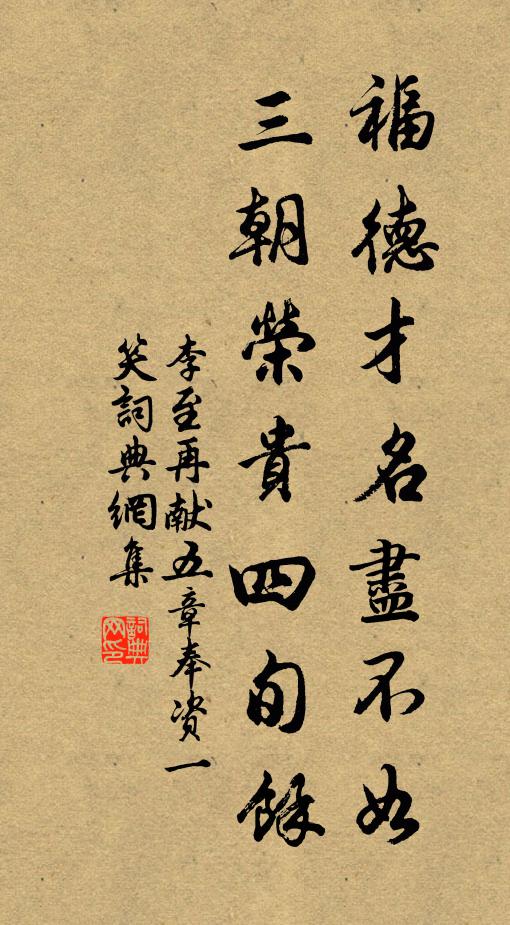 福德才名盡不如
三朝榮貴四旬餘
李至再献五章奉资一
笑詞典網集
詞典网印